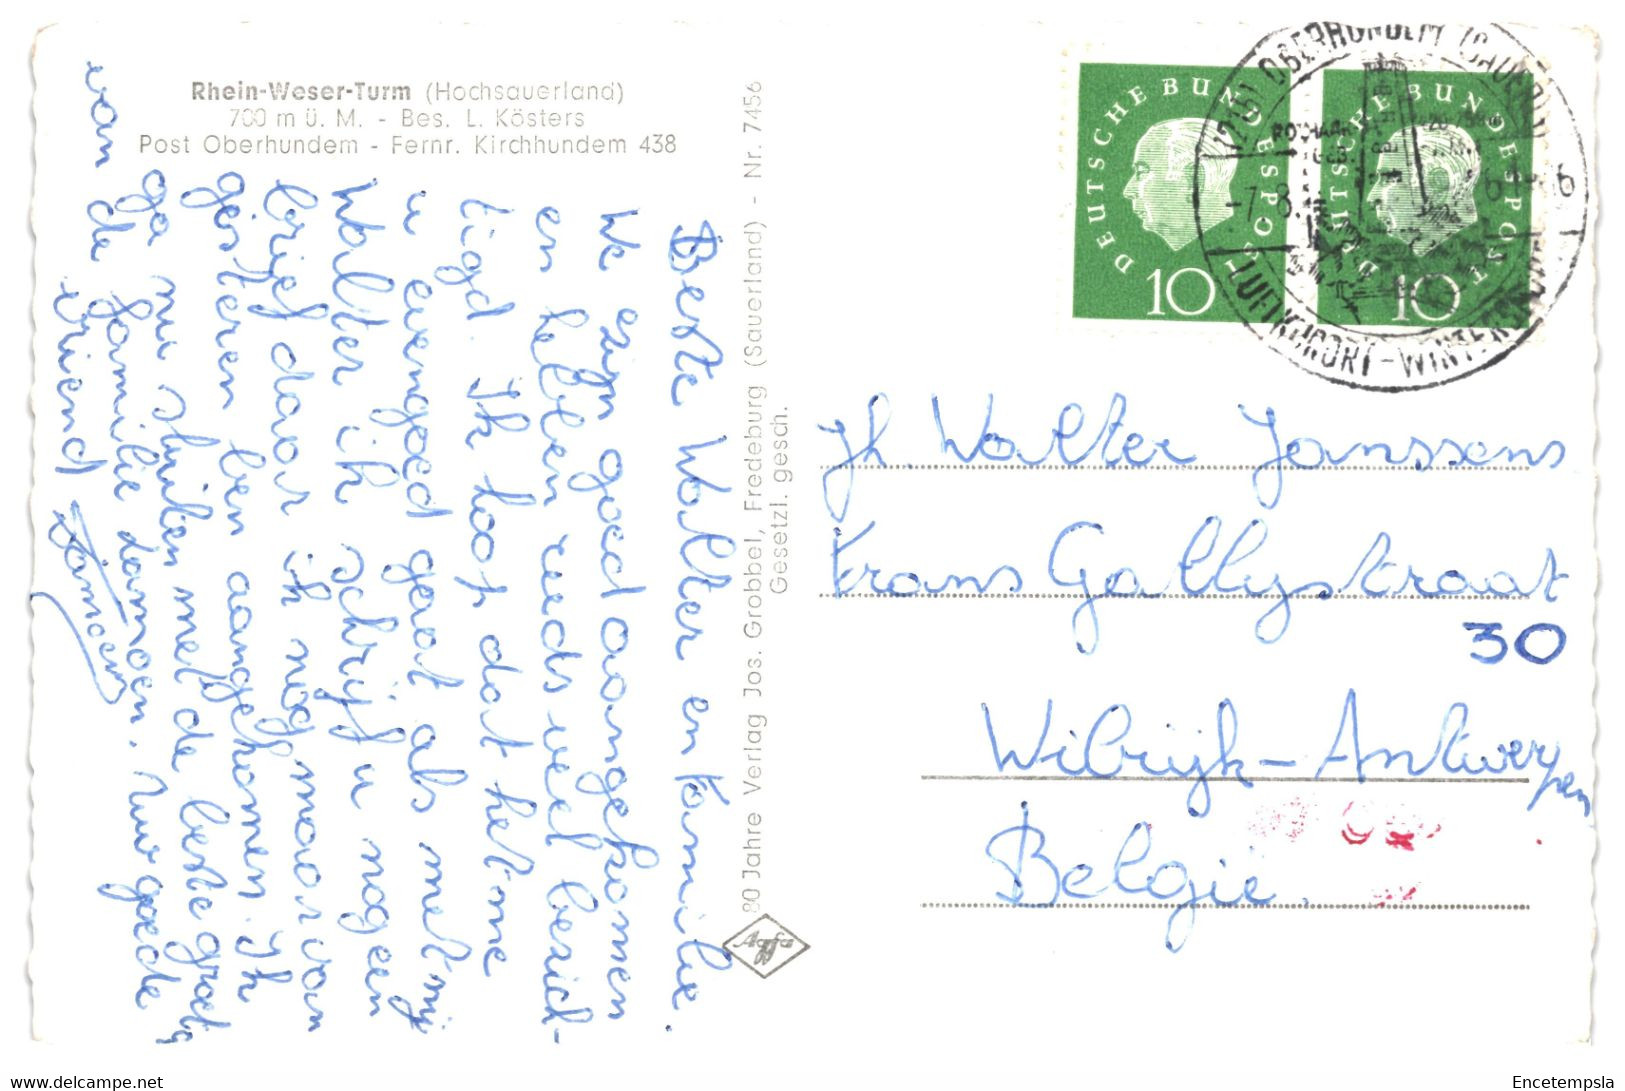 Rhein-Weser-Turm (Hochsauerland)
700 m ü. M. - Bes. L. Kösters
Post Oberhundem - Fernr. Kirchhundem 438
Beste Walter en Familie.
We zijn goed aangekomen
en hebben reeds veel bezich-
tigd. Ik hoop dat het me
u evengoed gaat als met mij
Walter ik schrijf u nog een
brief daar ik nog maar van
gisteren ben aangekomen. Ik
ga nu sluiten met de beste groet
van de familie Damoen. Uw goede
vriend
80 Jahre Verlag Jos. Grobbel, Fredeburg (Sauerland) - Nr. 7456
Gesetzl. gesch.
Agfa
DEUTSCHE BUNDESPOST
10
DEUTSCHE BUNDESPOST
10
OBERHUNDEM (SAUERL)
LUFTKURORT - WINTERSPORT
-7.8.
Jh. Walter Janssens
Frans Gallystraat
30
Wilrijk-Antwerpen
Belgie.
Encetempsla